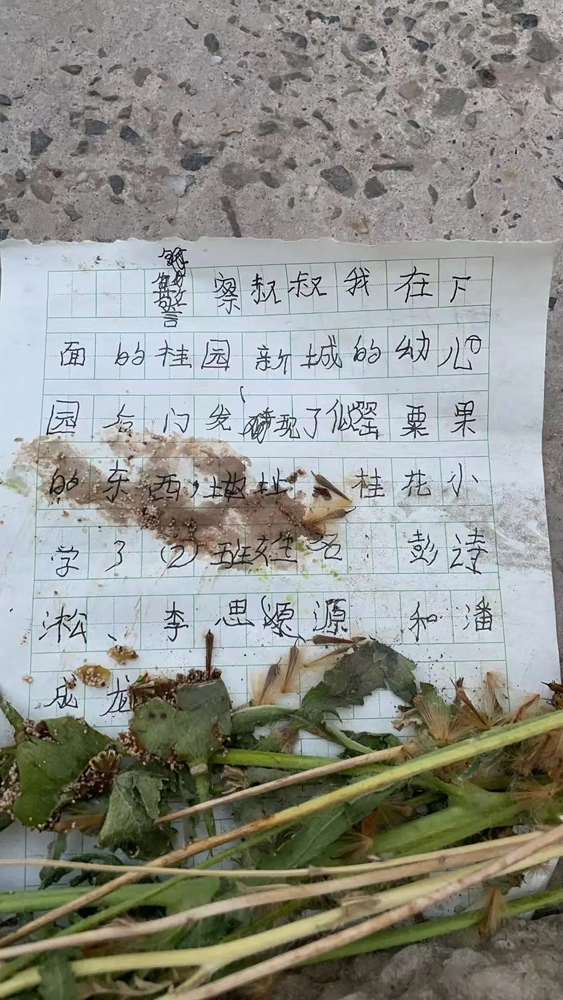 警察叔叔我在下
面的桂园新城的幼儿
园后门发现了似罂粟果
的东西,地址 桂花小
学了(2)班姓名 彭诗
淞、李思源 和潘
成龙